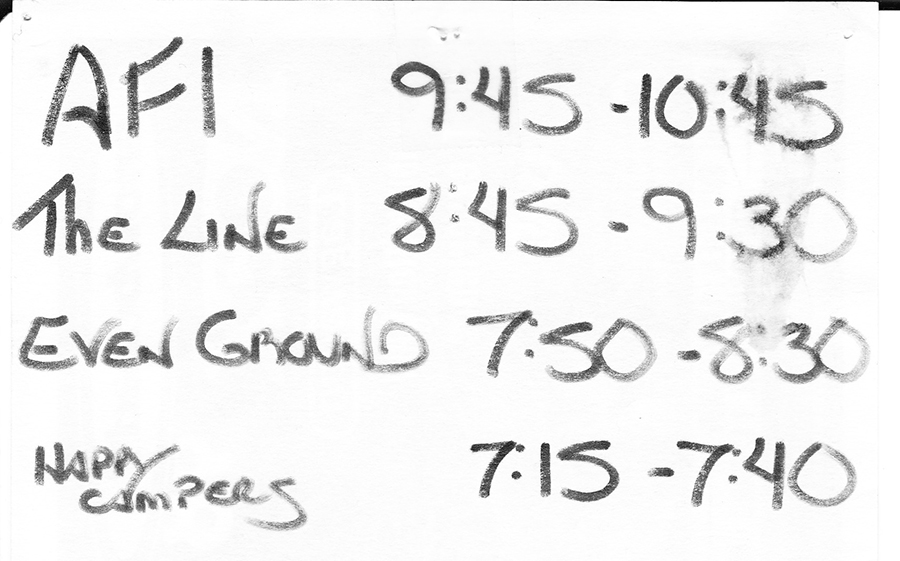 AFI 9:45 - 10:45
The Line 8:45 - 9:30
Even Ground 7:50 - 8:30
Happy
Campers 7:15 - 7:40